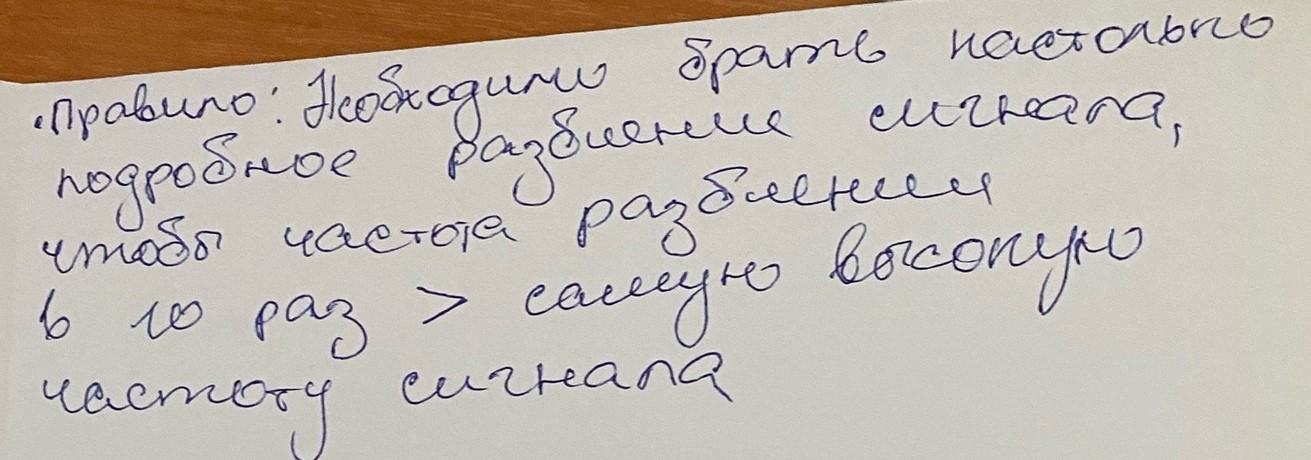 • Правило: Необходимо брать настолько
подробное разбиение сигнала,
чтобы частота разбиения
в 10 раз > самую высокую
частоту сигнала